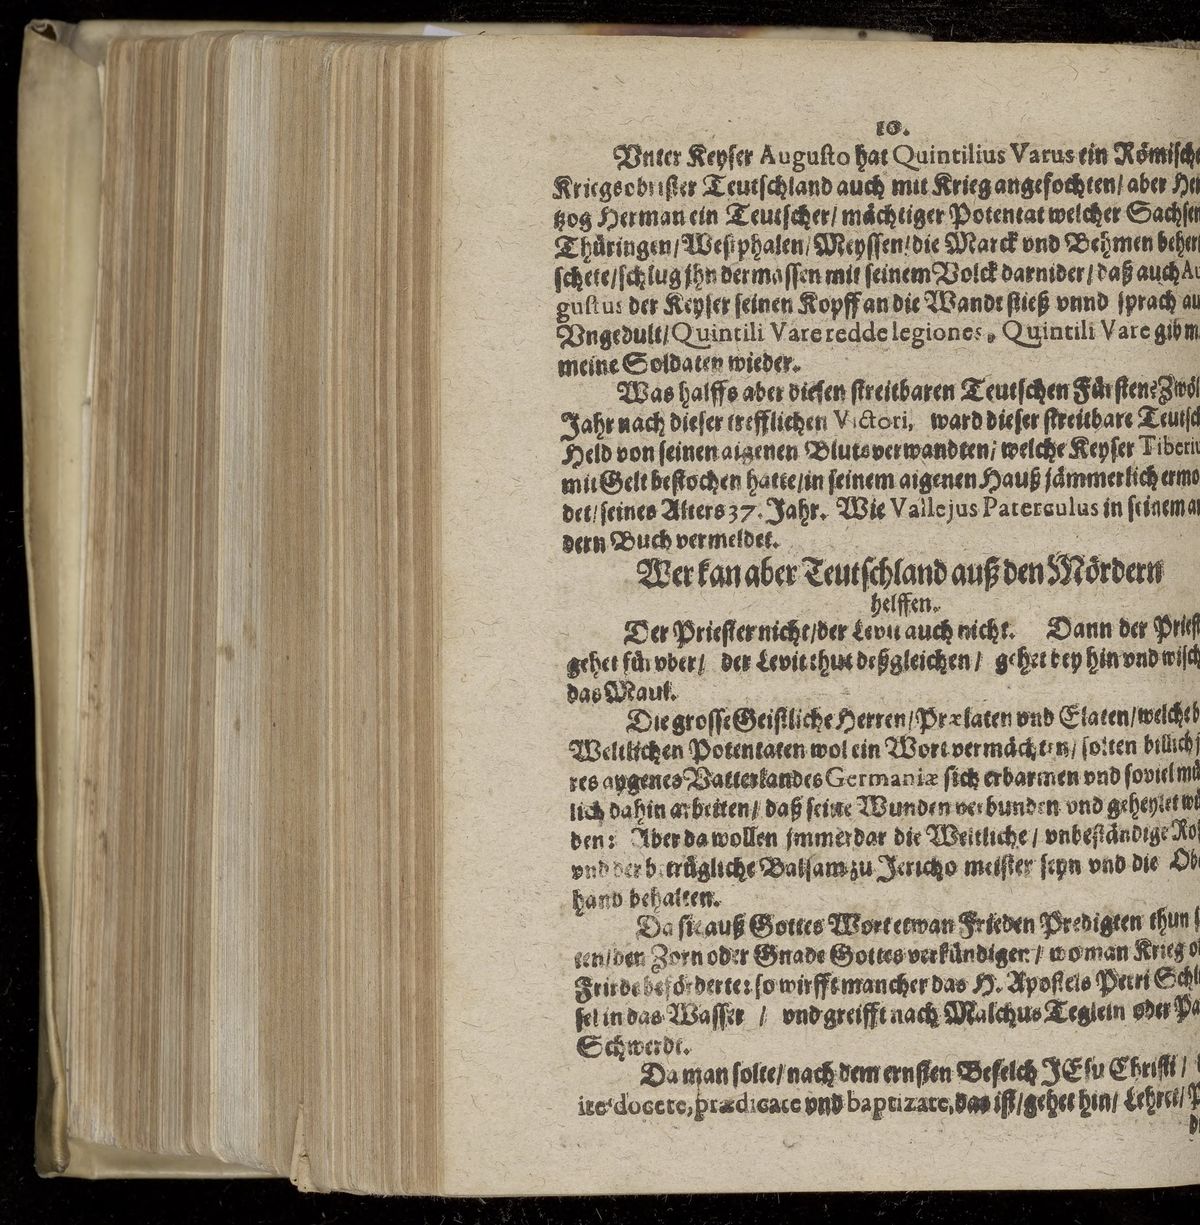 10.
Vnter Keyser Augusto hat Quintilius Varus ein Römische
Kriegsobrister Teutschland auch mit Krieg angefochten/ aber Her
tzog Herman ein Teutscher/ mächtiger Potentat welcher Sachsen
Thüringen/ Westphalen/ Meyssen/ die Marck vnd Behmen beher
schete/ schlug jhn dermassen mit seinem Volck darnider/ daß auch Au
gustus der Keyser seinen Kopff an die Wandt stieß vnnd sprach au
Vngedult/ Quintili Vare redde legiones, Quintili Vare gib m
meine Soldaten wieder.
Was halffs aber diesen streitbaren Teutschen Fürsten? Zwöl
Jahr nach dieser trefflichen Victori, ward dieser streitbare Teutsch
Held von seinen aigenen Blutsverwandten/ welche Keyser Tiberiu
mit Gelt bestochen hatte/ in seinem aigenen Hauß jämmerlich ermo
det/ seines Alters 37. Jahr. Wie Vallejus Paterculus in seinem an
dern Buch vermeldet.
Wer kan aber Teutschland auß den Mördern
helffen.
Der Priester nicht/ der Levit auch nicht. Dann der Priest
gehet fürvber/ der Levit thut deßgleichen/ gehet bey hin vnd wisch
das Maul.
Die grosse Geistliche Herren/ Prælaten vnd Elaten/ welche b
Weltlichen Potentaten wol ein Wort vermächten/ solten billich
res aygenes Vatterlandes Germaniæ sich erbarmen vnd soviel mü
lich dahin arbeiten/ daß seine Wunden verbunden vnd geheylet wü
den: Aber da wollen jmmerdar die Weltliche/ vnbeständige Ro
vnd der betrügliche Balsam zu Jericho meister seyn vnd die Obe
hand behalten.
Da sie auß Gottes Wort etwan Frieden Predigten thun s
ten/ den Zorn oder Gnade Gottes verkündigen/ wo man Krieg o
Friede beförderte: so wirfft mancher das H. Apostels Petri Schlü
sel in das Wasser / vnd greifft nach Malchus Teglein oder Pa
Schwerdt.
Da man solte/ nach dem ernsten Befelch JEsu Christi/
ite docete, prædicate vnd baptizate, das ist/ gehet hin/ Lehret/ P